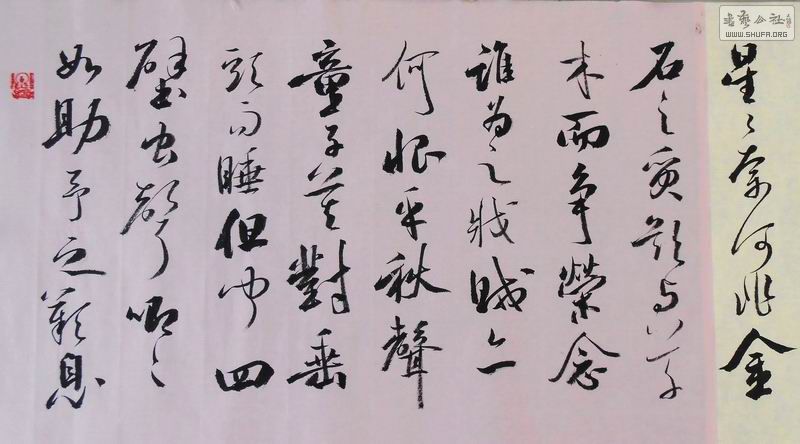 書藝公社
WWW.SHUFA.ORG
星〻奈何非金
石之質欲与草
木而爭榮念
誰為之戕賊亦
何恨乎秋聲
童子莫對垂
頭而睡但聞四
壁虫聲唧〻
如助予之歎息